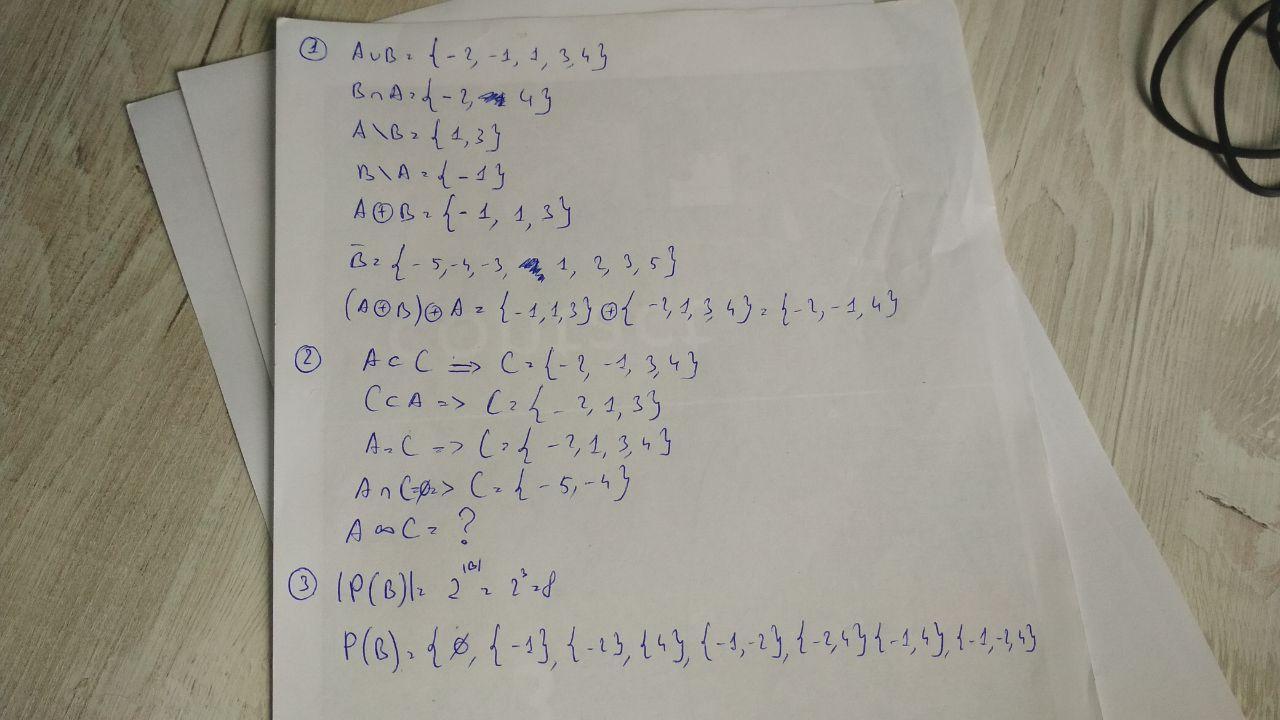 ① A∪B = {-2, -1, 1, 3, 4}
B∩A = {-2, 4}
A\B = {1, 3}
B\A = {-1}
A⊕B = {-1, 1, 3}
B̅ = {-5, -4, -3, 1, 2, 3, 5}
(A⊕B)⊕A = {-1, 1, 3} ⊕ {-2, 1, 3, 4} = {-2, -1, 4}
② A⊂C => C = {-2, -1, 3, 4}
C⊂A => C = {-2, 1, 3}
A=C => C = {-2, 1, 3, 4}
A∩C=∅ => C = {-5, -4}
A ∞ C = ?
③ |P(B)| = 2^|B| = 2^3 = 8
P(B) = {∅, {-1}, {-2}, {4}, {-1,-2}, {-2,4} {-1,4}, {-1,-2,4}